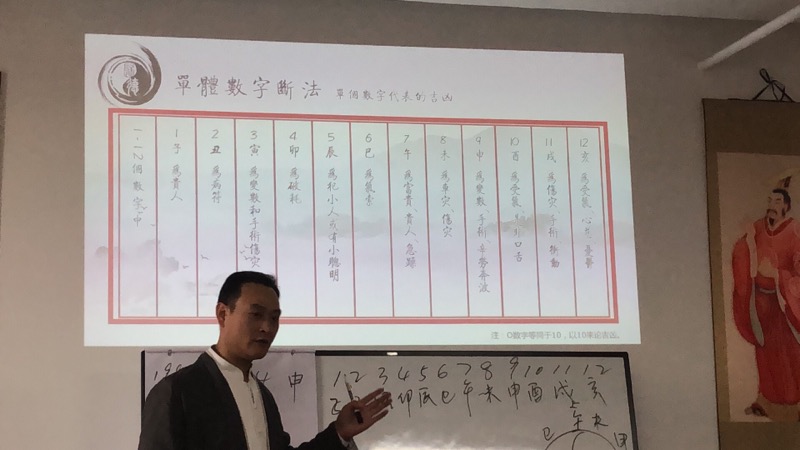 單體數字斷法 單個數字代表的吉凶
1-12個數字中
1 子 為貴人
2 丑 為病符
3 寅 為變數和手術傷災
4 卯 為破耗
5 辰 為犯小人或有小聰明
6 巳
7 午 為富貴 貴人 急躁
8 未 為車災 傷災
9 申 為變數 手術 辛勞奔波
10 酉 為受氣 口舌
11 戌 為傷災 手術 衝動
12 亥 為受氣 心
注:0數字等同于10,以10來論吉凶。
申
1 2 3 4 5 6 7 8 9 10 11 12
卯 辰 巳 午 未 申 酉 戌 亥
午 未
巳 申